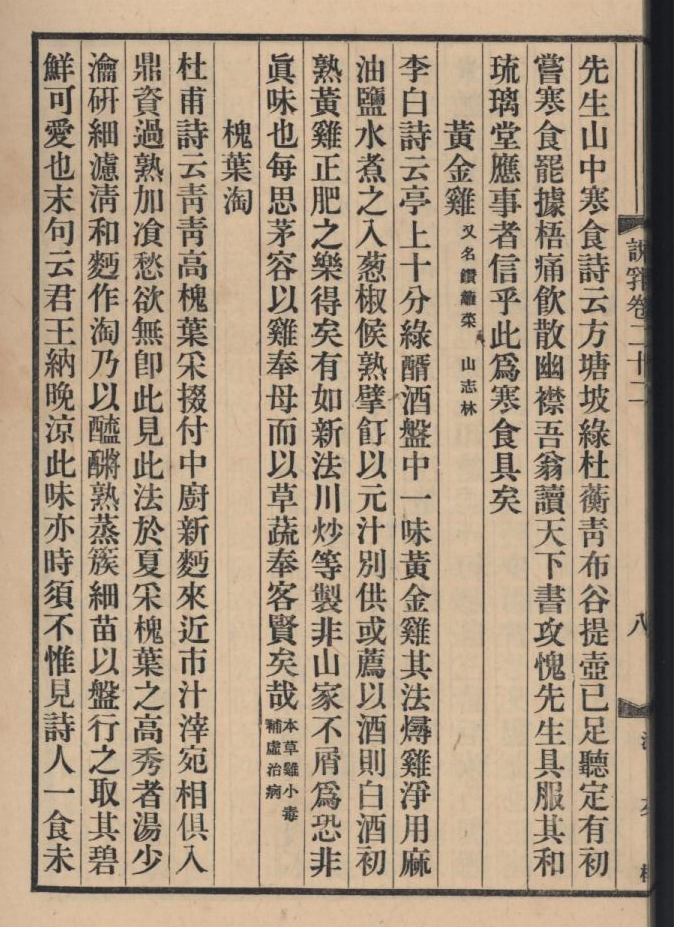 說郛卷二十二
八
先生山中寒食詩云方塘坡綠杜蘅靑布谷提壺已足聽定有初
嘗寒食罷據梧痛飮散幽襟吾翁讀天下書攻愧先生具服其和
琉璃堂應事者信乎此爲寒食具矣
黃金雞 又名鑽籬菜 山志林
李白詩云亭上十分綠醑酒盤中一味黃金雞其法燖雞淨用麻
油鹽水煮之入葱椒候熟擘飣以元汁別供或薦以酒則白酒初
熟黃雞正肥之樂得矣有如新法川炒等製非山家不屑爲恐非
眞味也每思茅容以雞奉母而以草蔬奉客賢矣哉 本草雞小毒
補虛治病
槐葉淘
杜甫詩云靑靑高槐葉采掇付中廚新麪來近市汁滓宛相俱入
鼎資過熟加飡愁欲無卽此見此法於夏采槐葉之高秀者湯少
瀹硏細濾淸和麪作淘乃以醯醬熟蒸簇細苗以盤行之取其碧
鮮可愛也末句云君王納晚涼此味亦時須不惟見詩人一食未